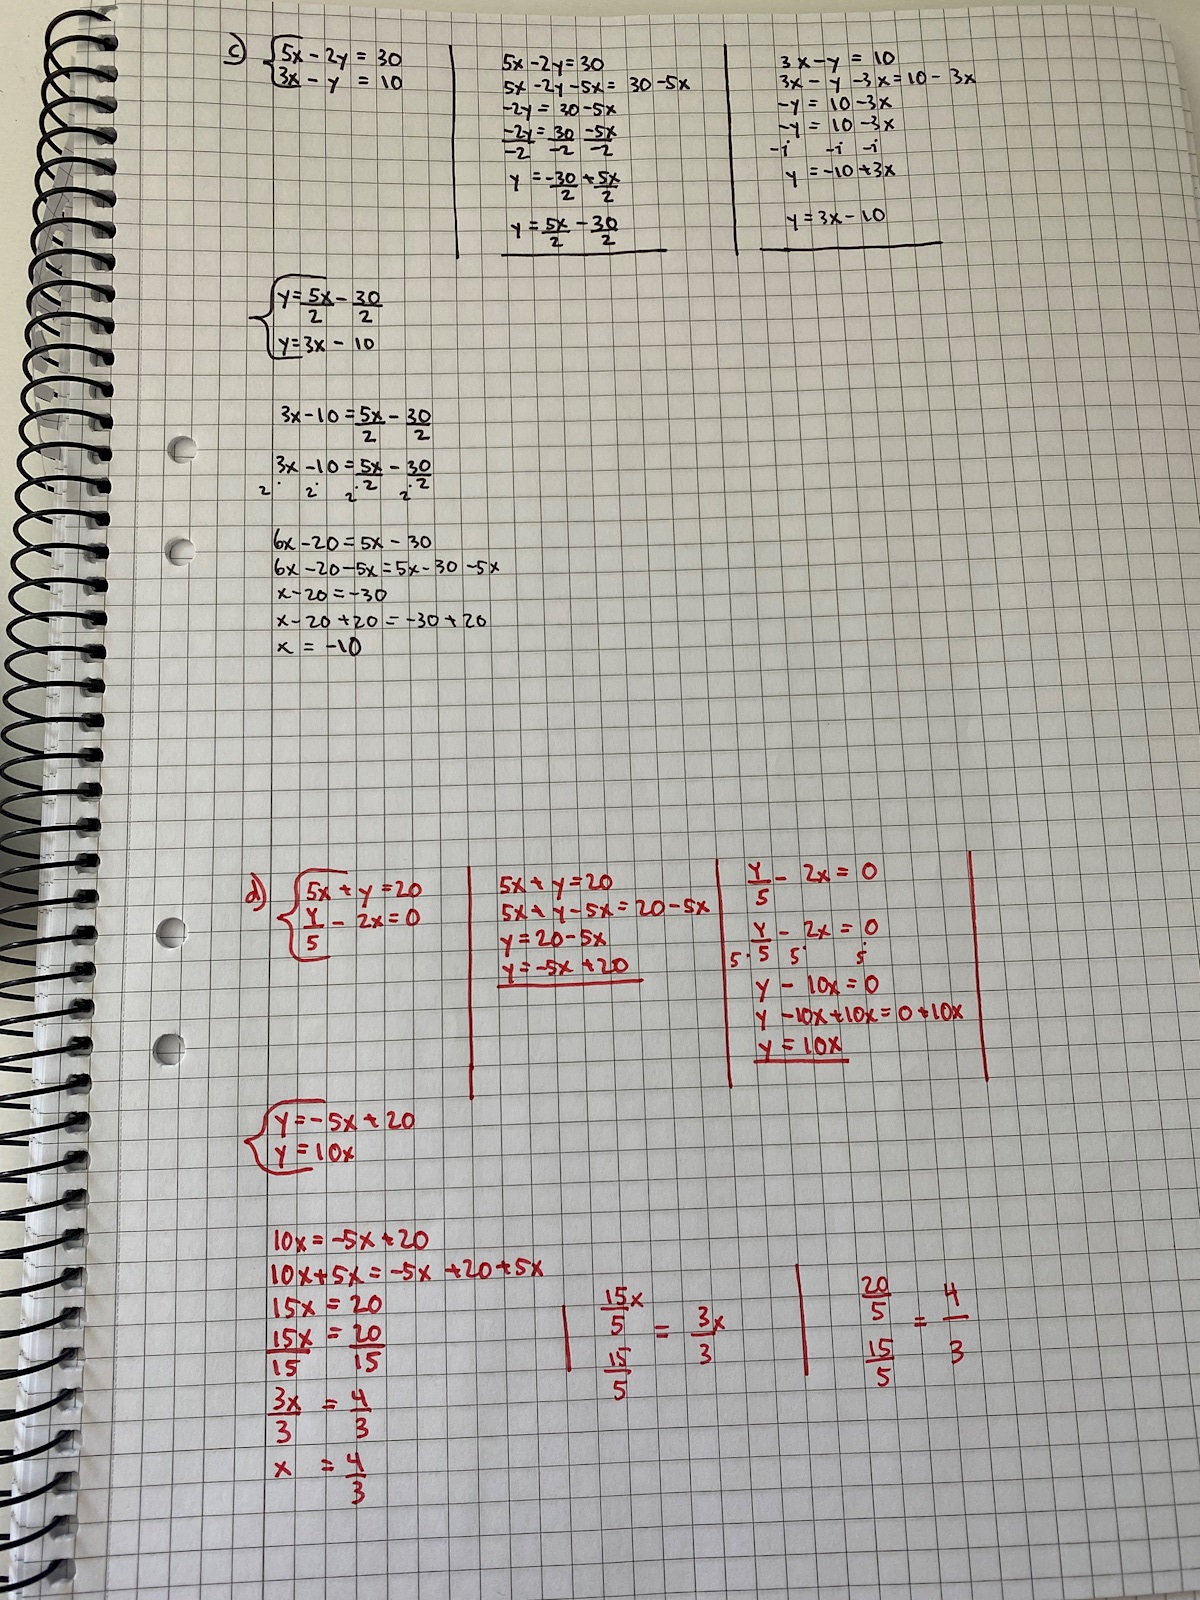 c) 5x - 2y = 30
3x - y = 10
5x - 2y = 30
5x - 2y - 5x = 30 - 5x
-2y = 30 - 5x
-2y/-2 = 30/-2 -5x/-2
y = -30/2 + 5x/2
y = 5x/2 - 30/2
3x - y = 10
3x - y - 3x = 10 - 3x
-y = 10 - 3x
-y = 10 - 3x
-1 -1 -1
y = -10 + 3x
y = 3x - 10
y = 5x/2 - 30/2
y = 3x - 10
3x - 10 = 5x/2 - 30/2
3x - 10 = 5x/2 - 30/2
2· 2· 2· 2·
6x - 20 = 5x - 30
6x - 20 - 5x = 5x - 30 - 5x
x - 20 = -30
x - 20 + 20 = -30 + 20
x = -10
d) 5x + y = 20
y/5 - 2x = 0
5x + y = 20
5x + y - 5x = 20 - 5x
y = 20 - 5x
y = -5x + 20
y/5 - 2x = 0
y/5 - 2x = 0
5· 5· 5·
y - 10x = 0
y - 10x + 10x = 0 + 10x
y = 10x
y = -5x + 20
y = 10x
10x = -5x + 20
10x + 5x = -5x + 20 + 5x
15x = 20
15x/15 = 20/15
3x/3 = 4/3
x = 4/3
15x/5
15/5
= 3x/3
20/5
15/5
= 4/3